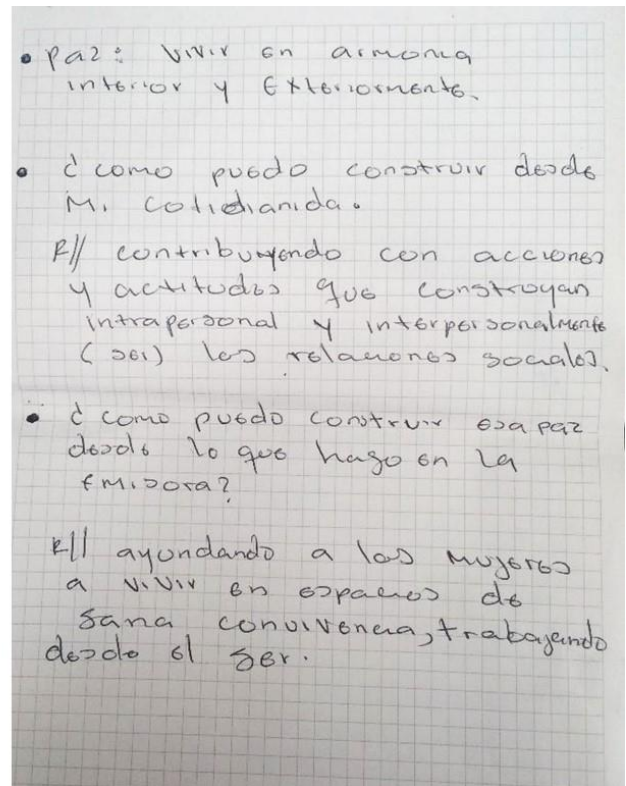 • paz: vivir en armonia
interior y Exteriormente.
• ¿como puedo construir desde
Mi cotidianida.
R// contribuyendo con acciones
y actitudes que construyan
intrapersonal y interpersonalmente
(ser) las relaciones sociales.
• ¿como puedo construir esa paz
desde lo que hago en la
Emisora?
R// ayundando a las mujeres
a vivir en espacios de
sana convivencia, trabajando
desde el ser.